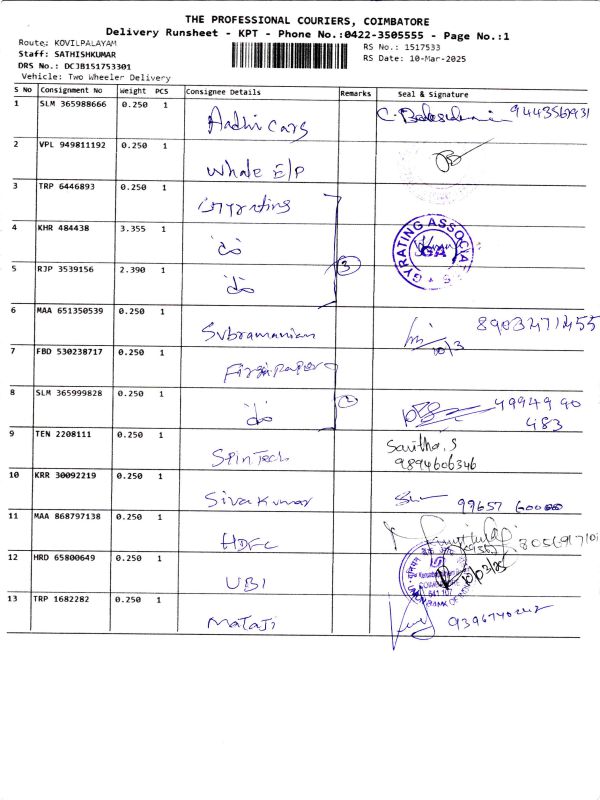 THE PROFESSIONAL COURIERS, COIMBATORE
Delivery Runsheet - KPT - Phone No.:0422-3505555 - Page No.:1
Route: KOVILPALAYAM
RS No.: 1517533
Staff: SATHISHKUMAR
RS Date: 10-Mar-2025
DRS No.: DCJB1S1753301
Vehicle: Two Wheeler Delivery
S No Consignment No Weight PCS Consignee Details Remarks Seal & signature
1 SLM 365988666 0.250 1 Aadhi Cars
2 VPL 949811192 0.250 1 Whale E/P
3 TRP 6446893 0.250 1 Gyrating
4 KHR 484438 3.355 1 do GYRATING ASSOCIATES GA
5 RJP 3539156 2.390 1 do 3
6 MAA 651350539 0.250 1 Subramanian 10/3 8903271455
7 FBD 530238717 0.250 1
8 SLM 365999828 0.250 1 do 2 4994990
483
9 TEN 2208111 0.250 1 SpinTech Savitha.S
9894606346
10 KRR 30092219 0.250 1 Sivakumar 99657 60000
11 MAA 868797138 0.250 1 HDFC
12 HRD 65800649 0.250 1 UBI 10/03/25
13 TRP 1682282 0.250 1 Mataji